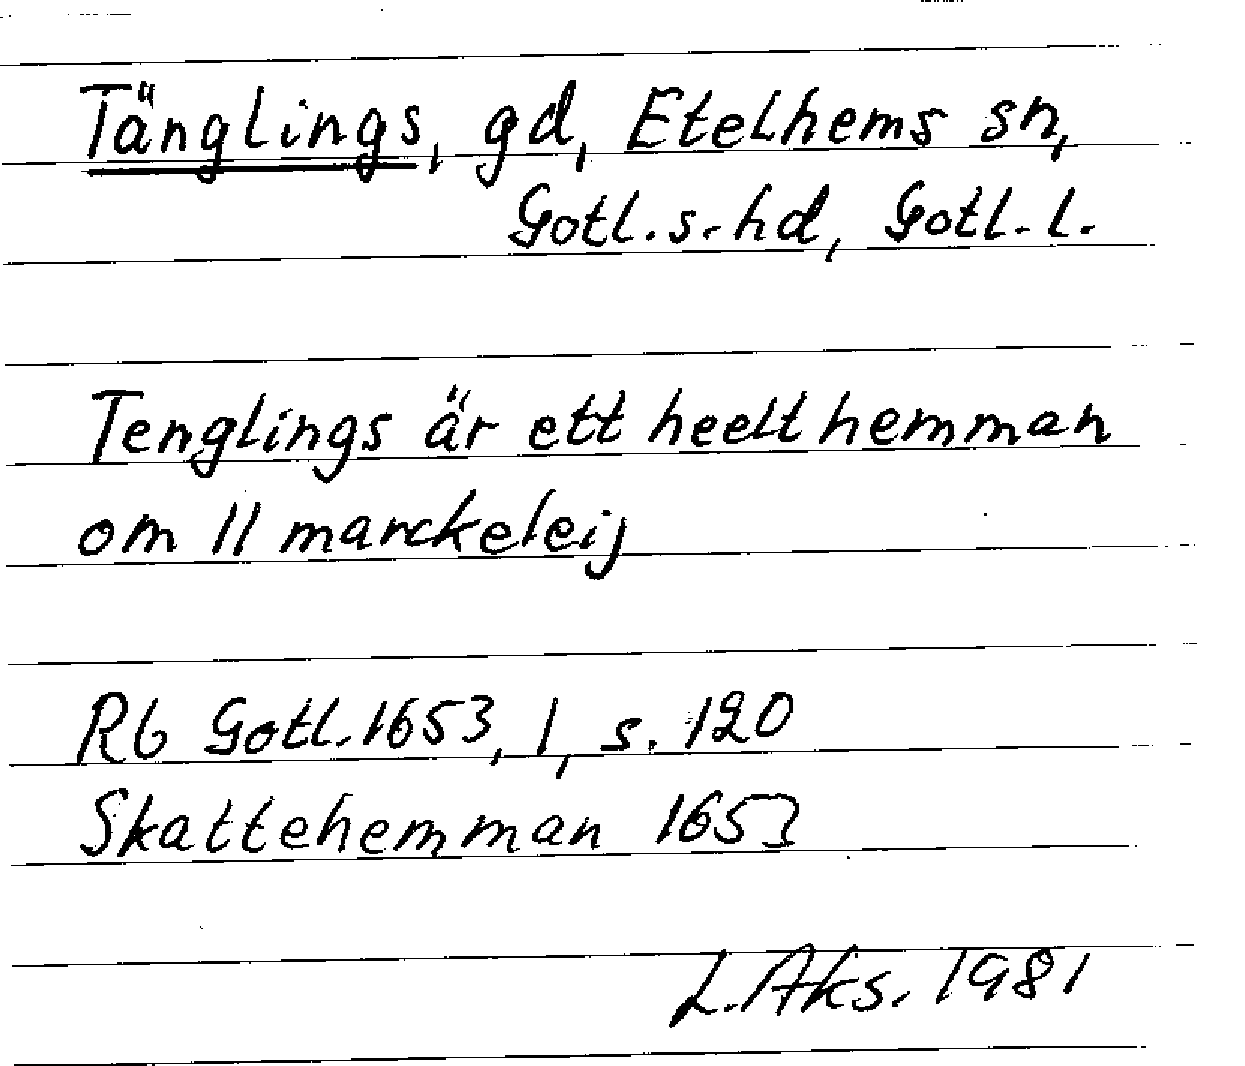 Tänglings, gd, Etelhems sn,
Gotl. s. hd, Gotl. l.
Tenglings är ett heelt hemman
om 11 marckeleij
Rb Gotl. 1653, 1, s. 120
Skattehemman 1653
L. Aks. 1981